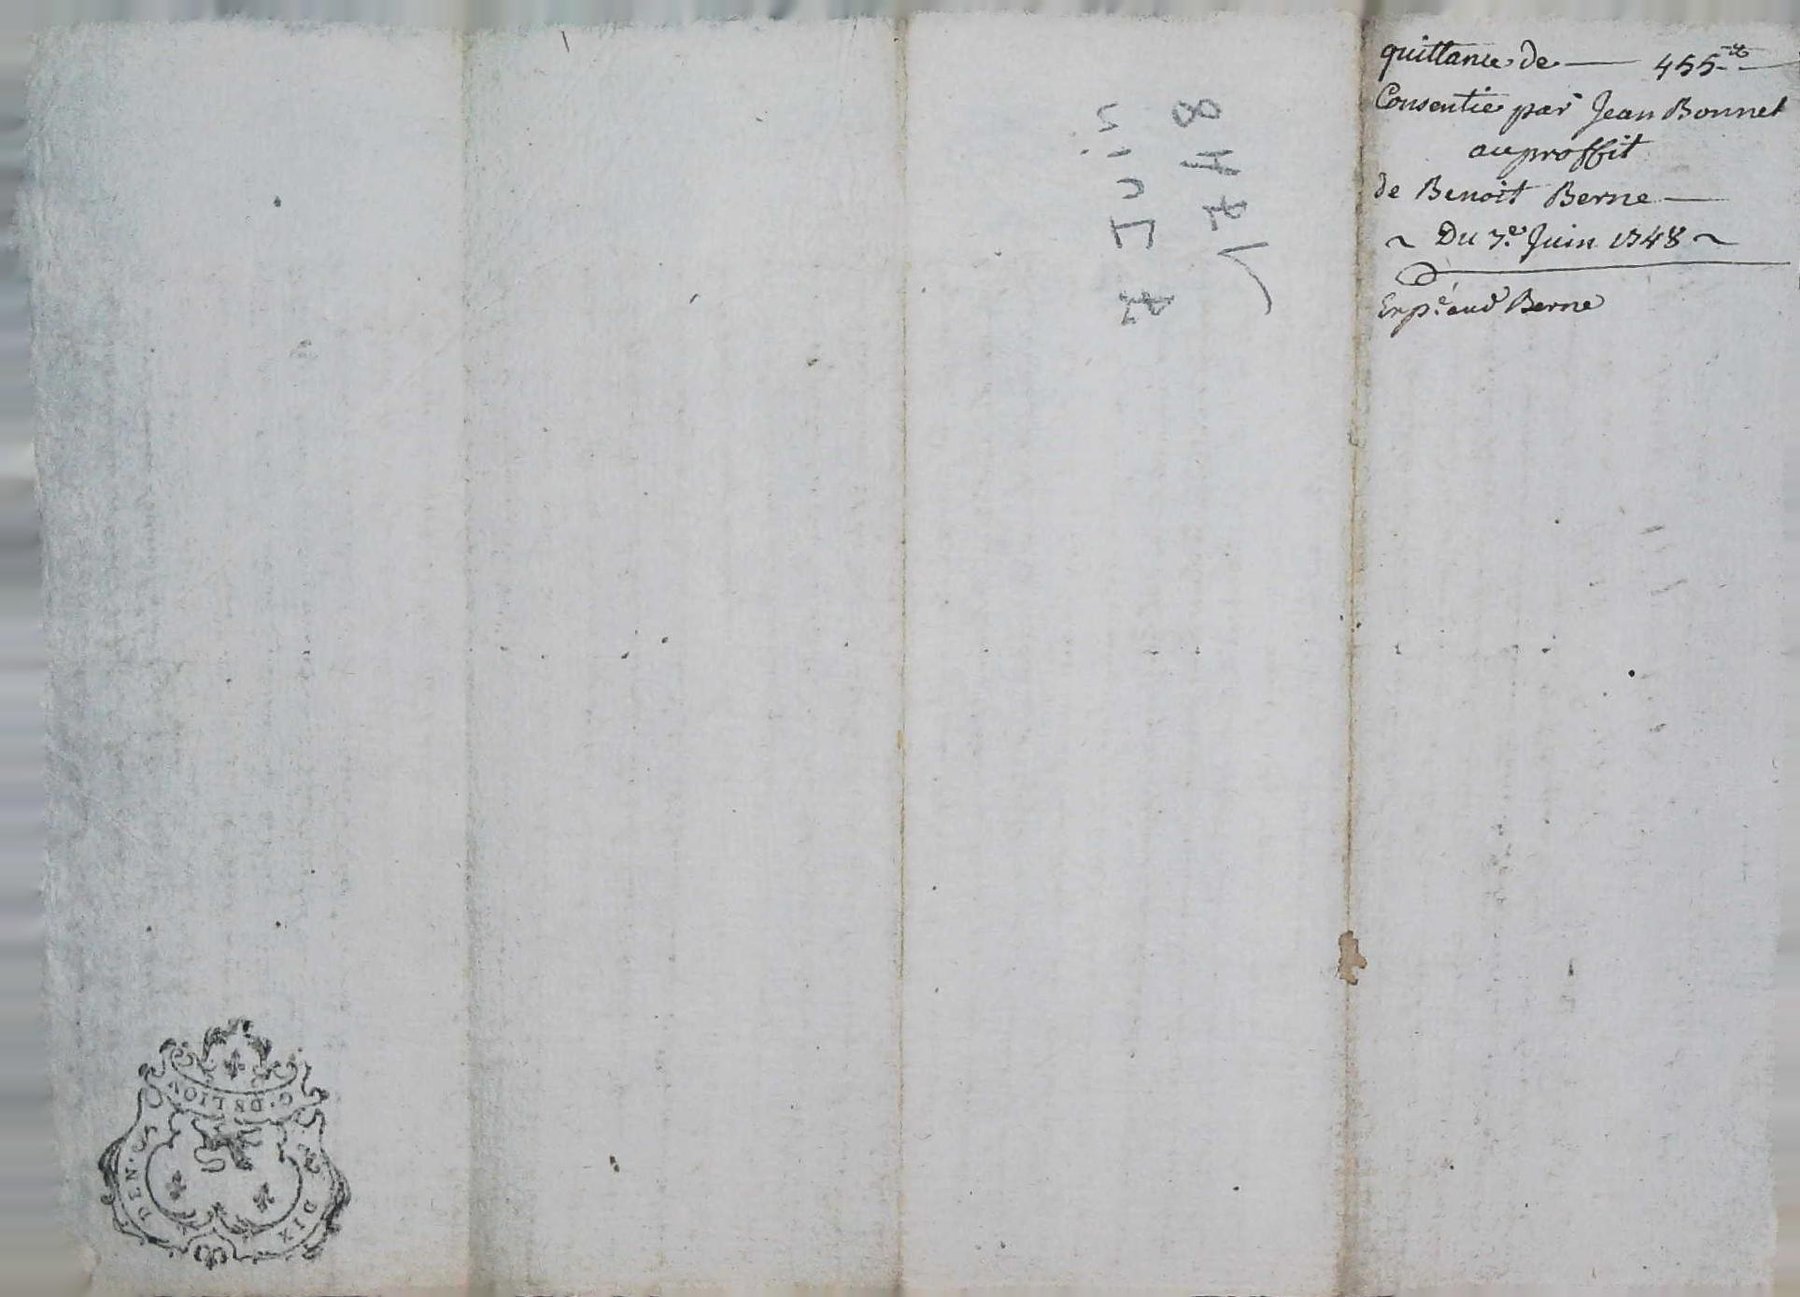 quittance de — 455ᵗᵗ —
Consentie par Jean Bonnet
au proffit
de Benoit Berne —
~ Du 7.e Juin 1748 ~
Exp.é aud Berne
7 Juin
1748
G. DE LION.
DIX DEN.